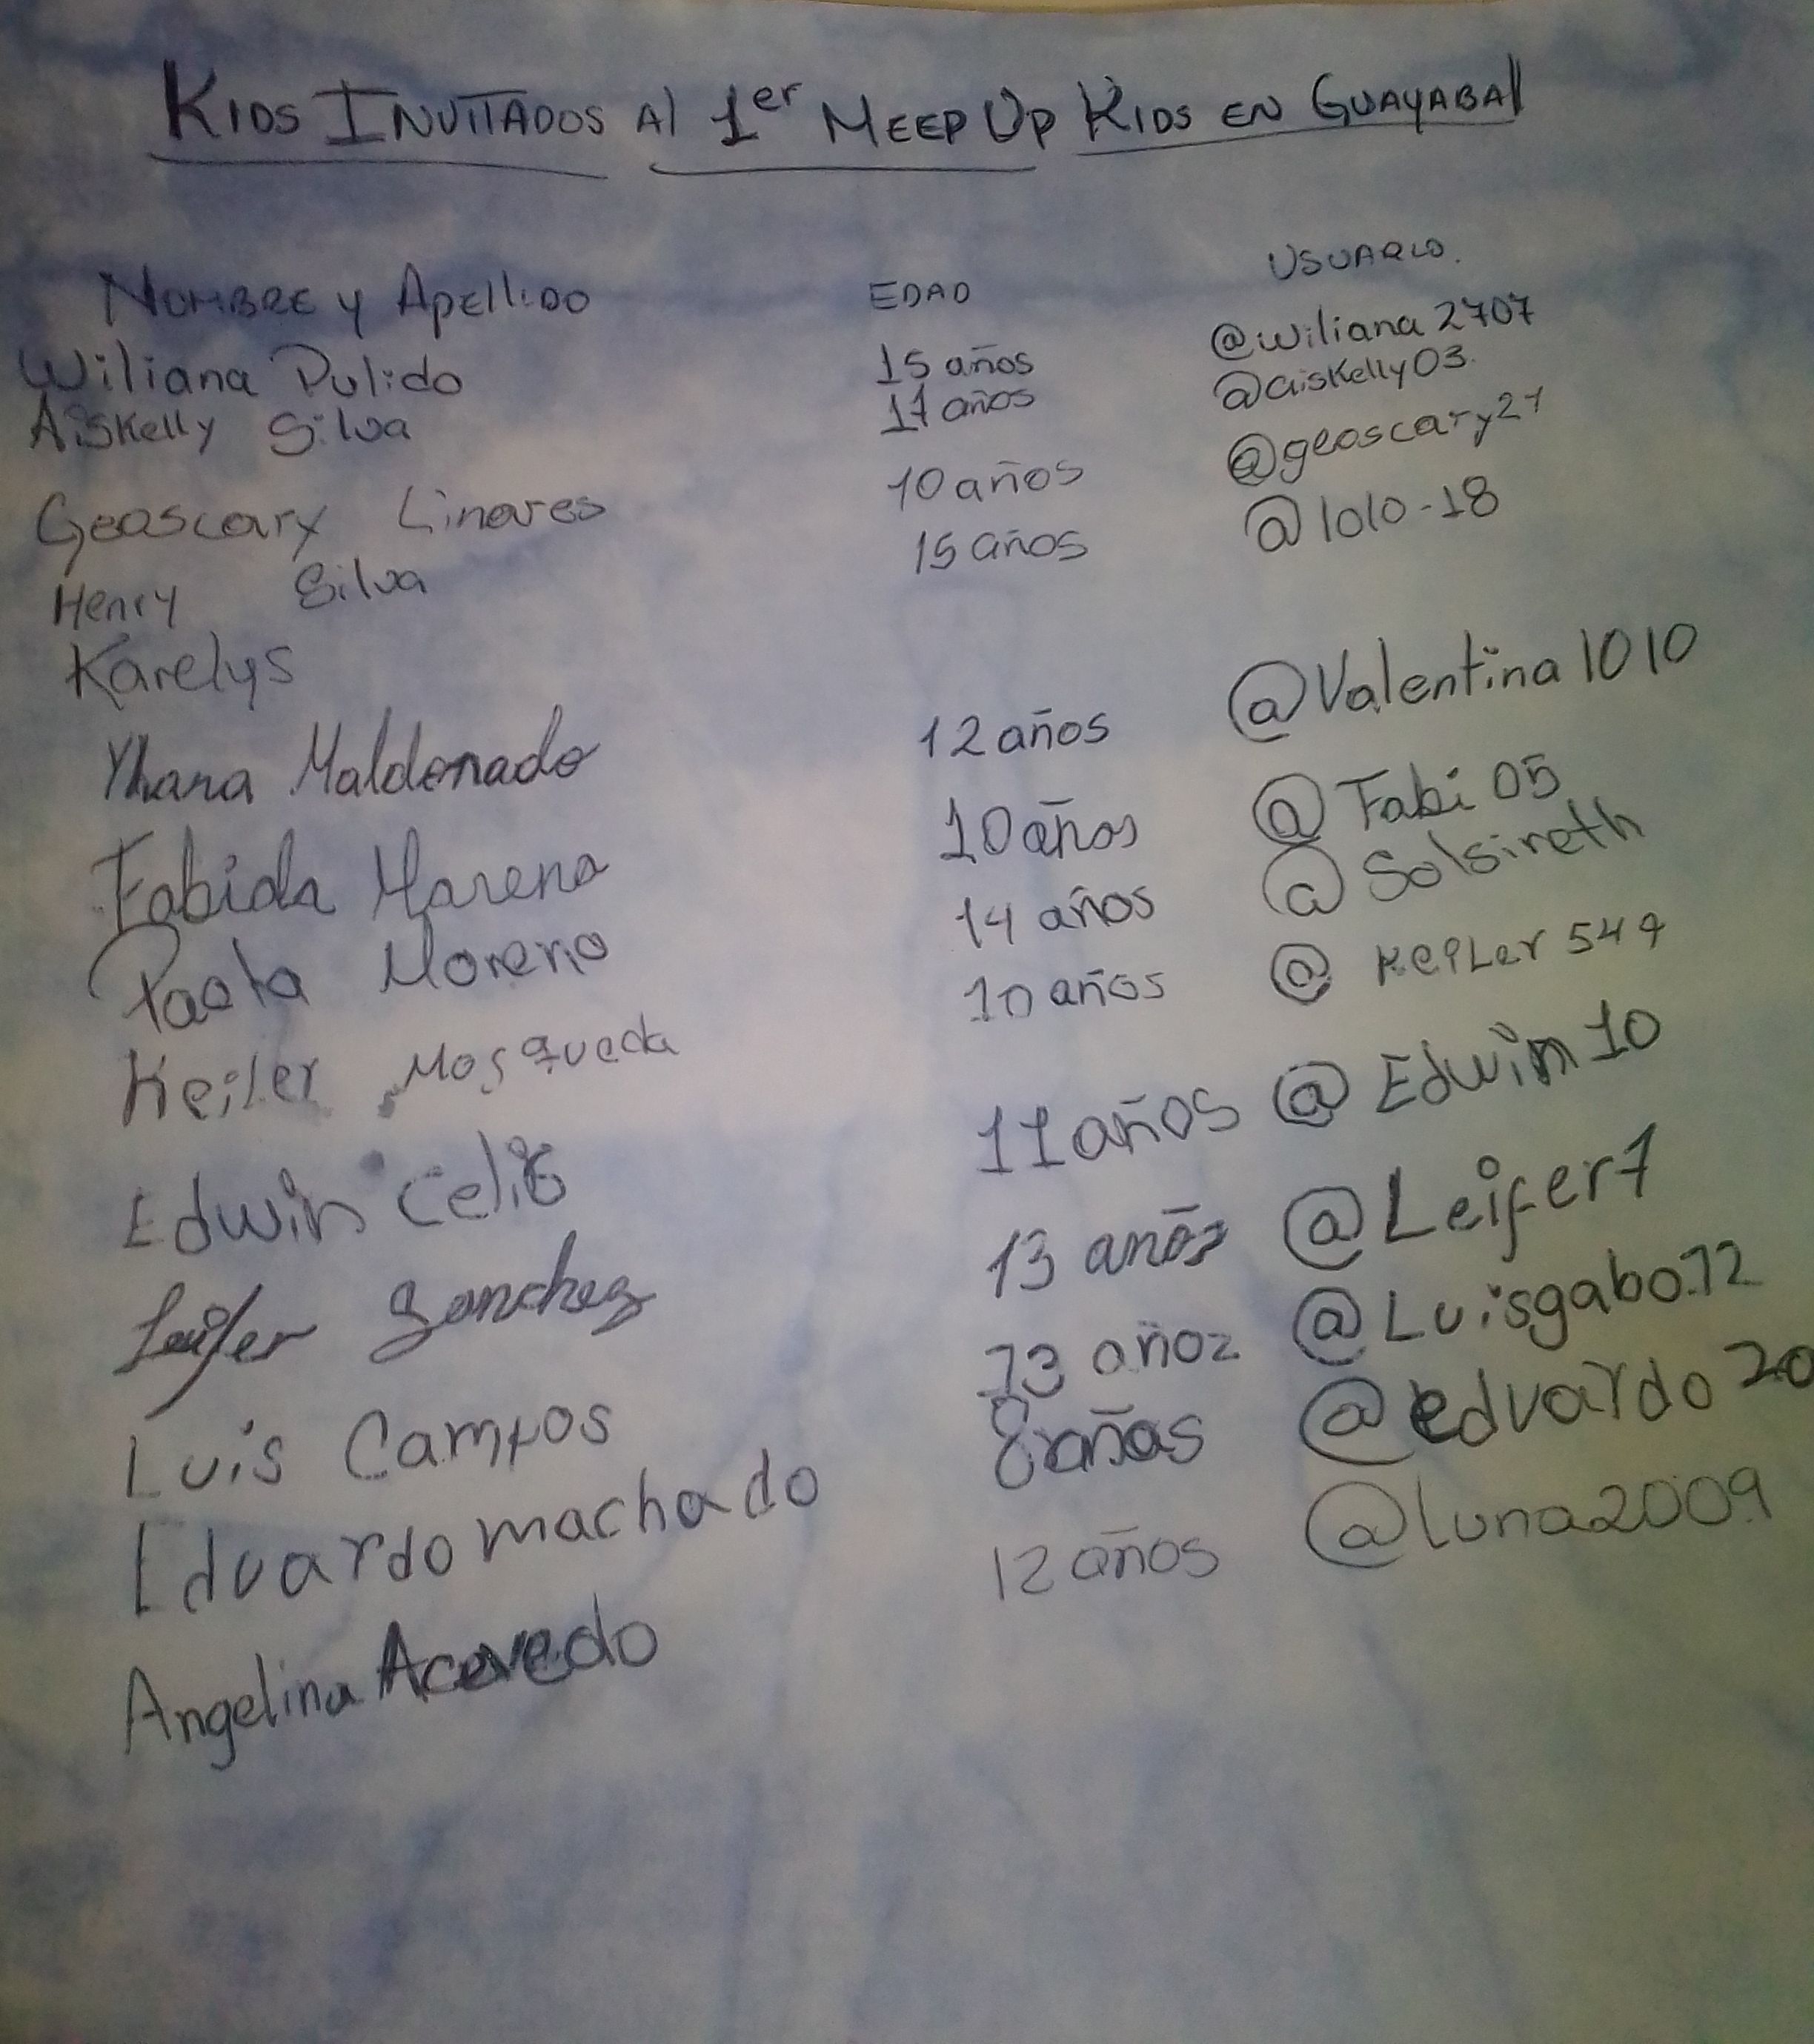 KIDS INVITADOS Al 1er MEEP UP KIDS EN GUAYABAl
NOMBRE y Apellido EDAD USUARIO.
Wiliana Pulido 15 años @wiliana2707
Aiskelly Silva 17 años @aiskelly03.
Geoscary Linares 10 años @geoscary21
Henry Silva 15 años @lolo-18
Karelys
Yhana Maldonado 12 años @Valentina1010
Fabiola Moreno 10 años @Fabi05
Paola Moreno 14 años @Solsireth
Keiler Mosqueda 10 años @KeiLer547
Edwin Celis 11 años @Edwin10
Leifer Sanchez 13 años @Leifer7
Luis Campos 13 añoz @Luisgabo.12
Eduardo machado 8 años @eduardo20
Angelina Acevedo 12 años @luna2009